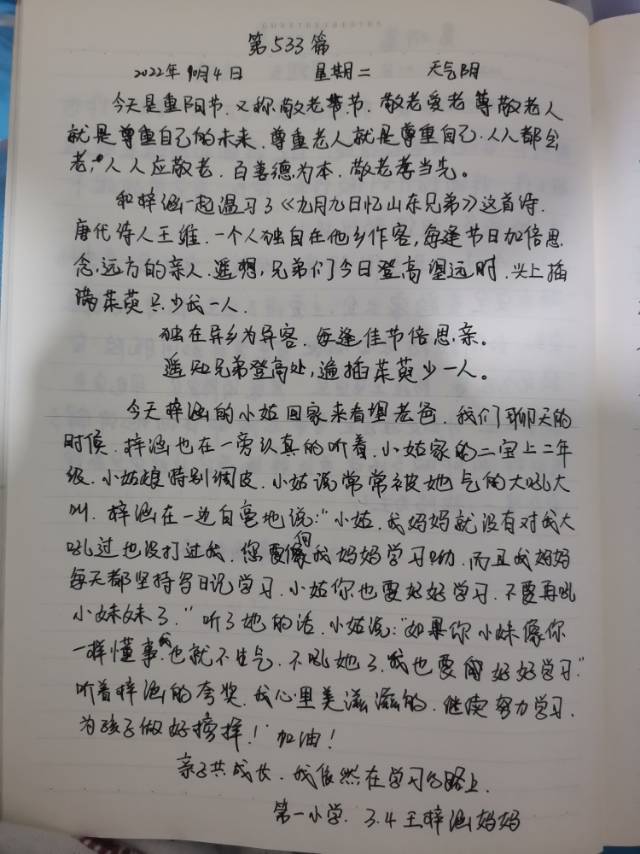 第533篇
2022年10月4日 星期二 天气阴
今天是重阳节.又称敬老节.敬老爱老 尊敬老人
就是尊重自己的未来.尊重老人就是尊重自己.人人都会
老,人人应敬老.百善德为本.敬老孝当先。
和梓涵一起温习了《九月九日忆山东兄弟》这首诗.
唐代诗人王维.一个人独自在他乡作客,每逢节日加倍思
念远方的亲人.遥想,兄弟们今日登高望远时.头上插
满茱萸只少我一人.
独在异乡为异客.每逢佳节倍思亲。
遥知兄弟登高处,遍插茱萸少一人。
今天梓涵的小姑回家来看望老爸.我们聊天的
时候.梓涵也在一旁认真的听着.小姑家的二宝上二年
级.小姑娘特别调皮.小姑说常常被她气的大吼大
叫.梓涵在一边自豪地说:"小姑.我妈妈就没有对我大
吼过也没打过我.您要向我妈妈学习呦.而且我妈妈
每天都坚持写日记学习.小姑你也要好好学习.不要再吼
小妹妹了."听了她的话.小姑说:"如果你小妹像你
一样懂事.我也就不生气.不吼她了.我也要好好学习"
听着梓涵的夸奖.我心里美滋滋的.继续努力学习.
为孩子做好榜样!加油!
亲子共成长.我依然在学习的路上.
第一小学.3.4王梓涵妈妈